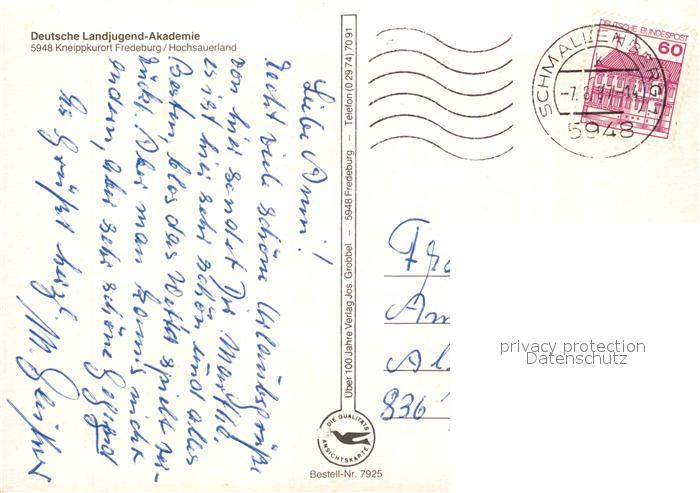 Deutsche Landjugend-Akademie
5948 Kneippkurort Fredeburg / Hochsauerland
Liebe Anni!
Recht viele schöne Urlaubsgrüße
von hier sendet Dir
es ist hier sehr schön und alles
Betrin, blos das Wetter spielt ver-
rückt. Aber man kanns nicht
ändern, aber sehr schöne Gegend
Es Grüßt herzl.
Über 100 Jahre Verlag Jos. Grobbel – 5948 Fredeburg – Telefon (0 29 74) 70 91
DIE QUALITÄTS
ANSICHTSKARTE
Bestell-Nr. 7925
DEUTSCHE BUNDESPOST
60
SCHMALLENBERG 1
5948
Fr
An
Al
836
privacy protection
Datenschutz